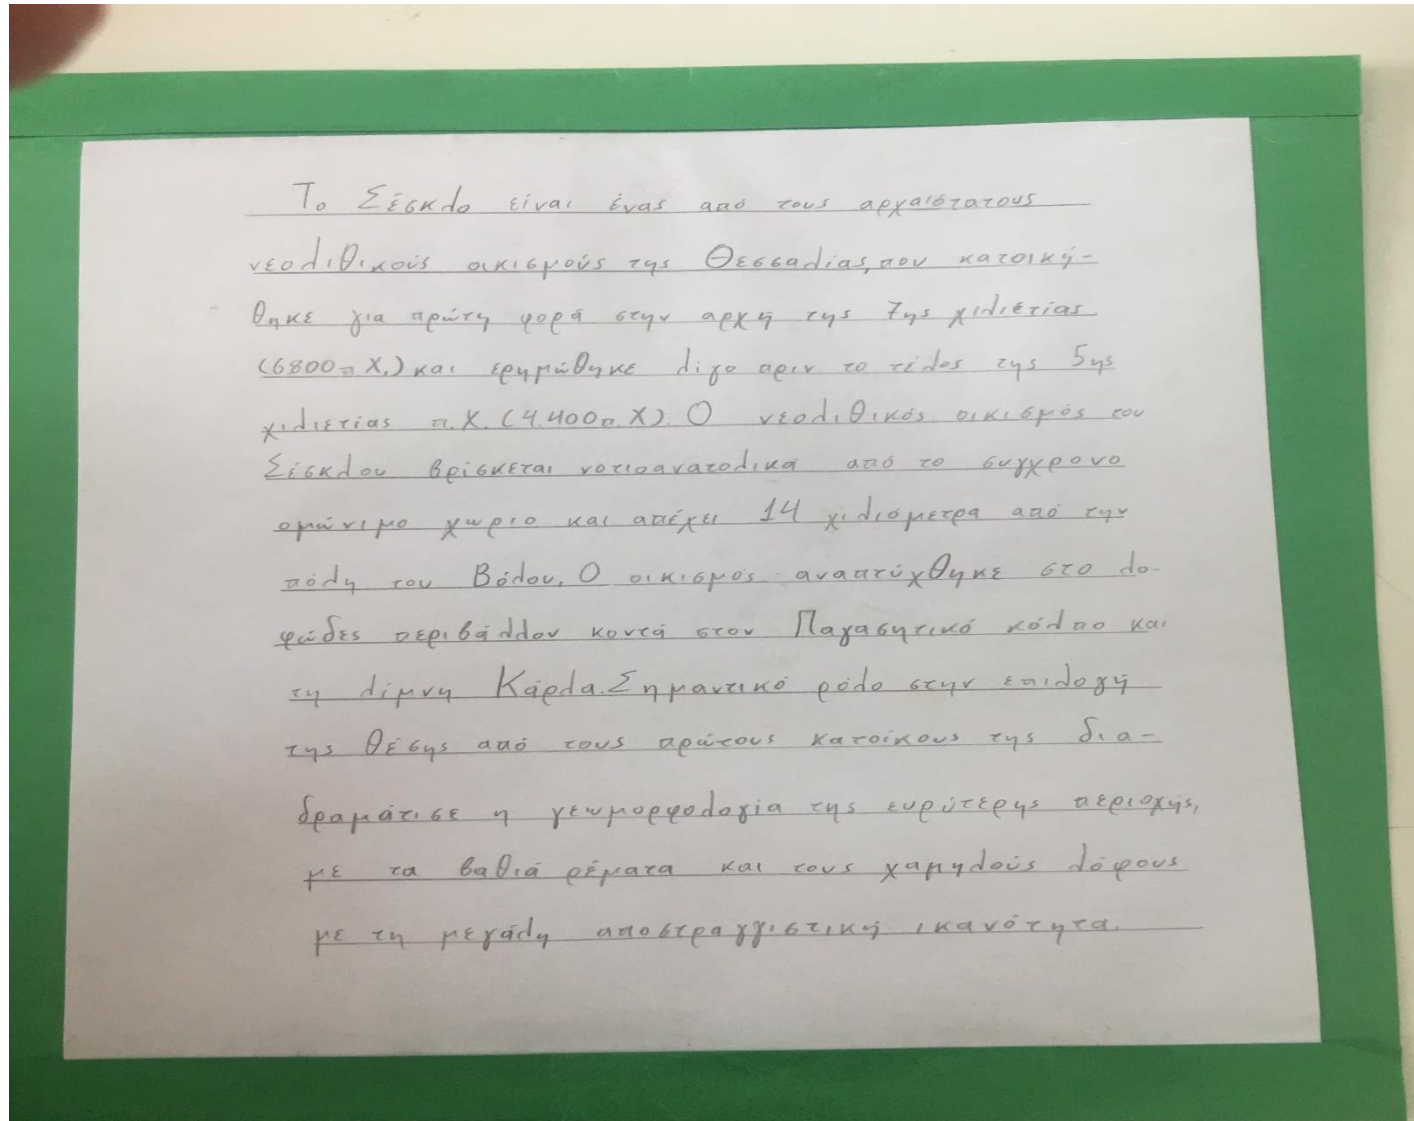 Το Σέσκλο είναι ένας από τους αρχαιότατους
νεολιθικούς οικισμούς της Θεσσαλίας, που κατοική-
θηκε για πρώτη φορά στην αρχή της 7ης χιλιετίας
(6800π Χ.) και ερημώθηκε λίγο πριν το τέλος της 5ης
χιλιετίας π.Χ. (4.400π.Χ). Ο νεολιθικός οικισμός του
Σέσκλου βρίσκεται νοτιοανατολικά από το συγχρονο
ομώνιμο χωριο και απέχει 14 χιλιόμετρα από την
πόλη του Βόλου. Ο οικισμός αναπτύχθηκε στο λο-
φώδες περιβάλλον κοντά στον Παγασητικό κόλπο και
τη λίμνη Κάρλα. Σημαντικό ρόλο στην επιλογή
της θέσης από τους πρώτους κατοίκους της δια-
δραμάτισε η γεωμορφολογία της ευρύτερης περιοχής,
με τα βαθιά ρέματα και τους χαμηλούς λόφους
με τη μεγάλη αποστραγγιστική ικανότητα.